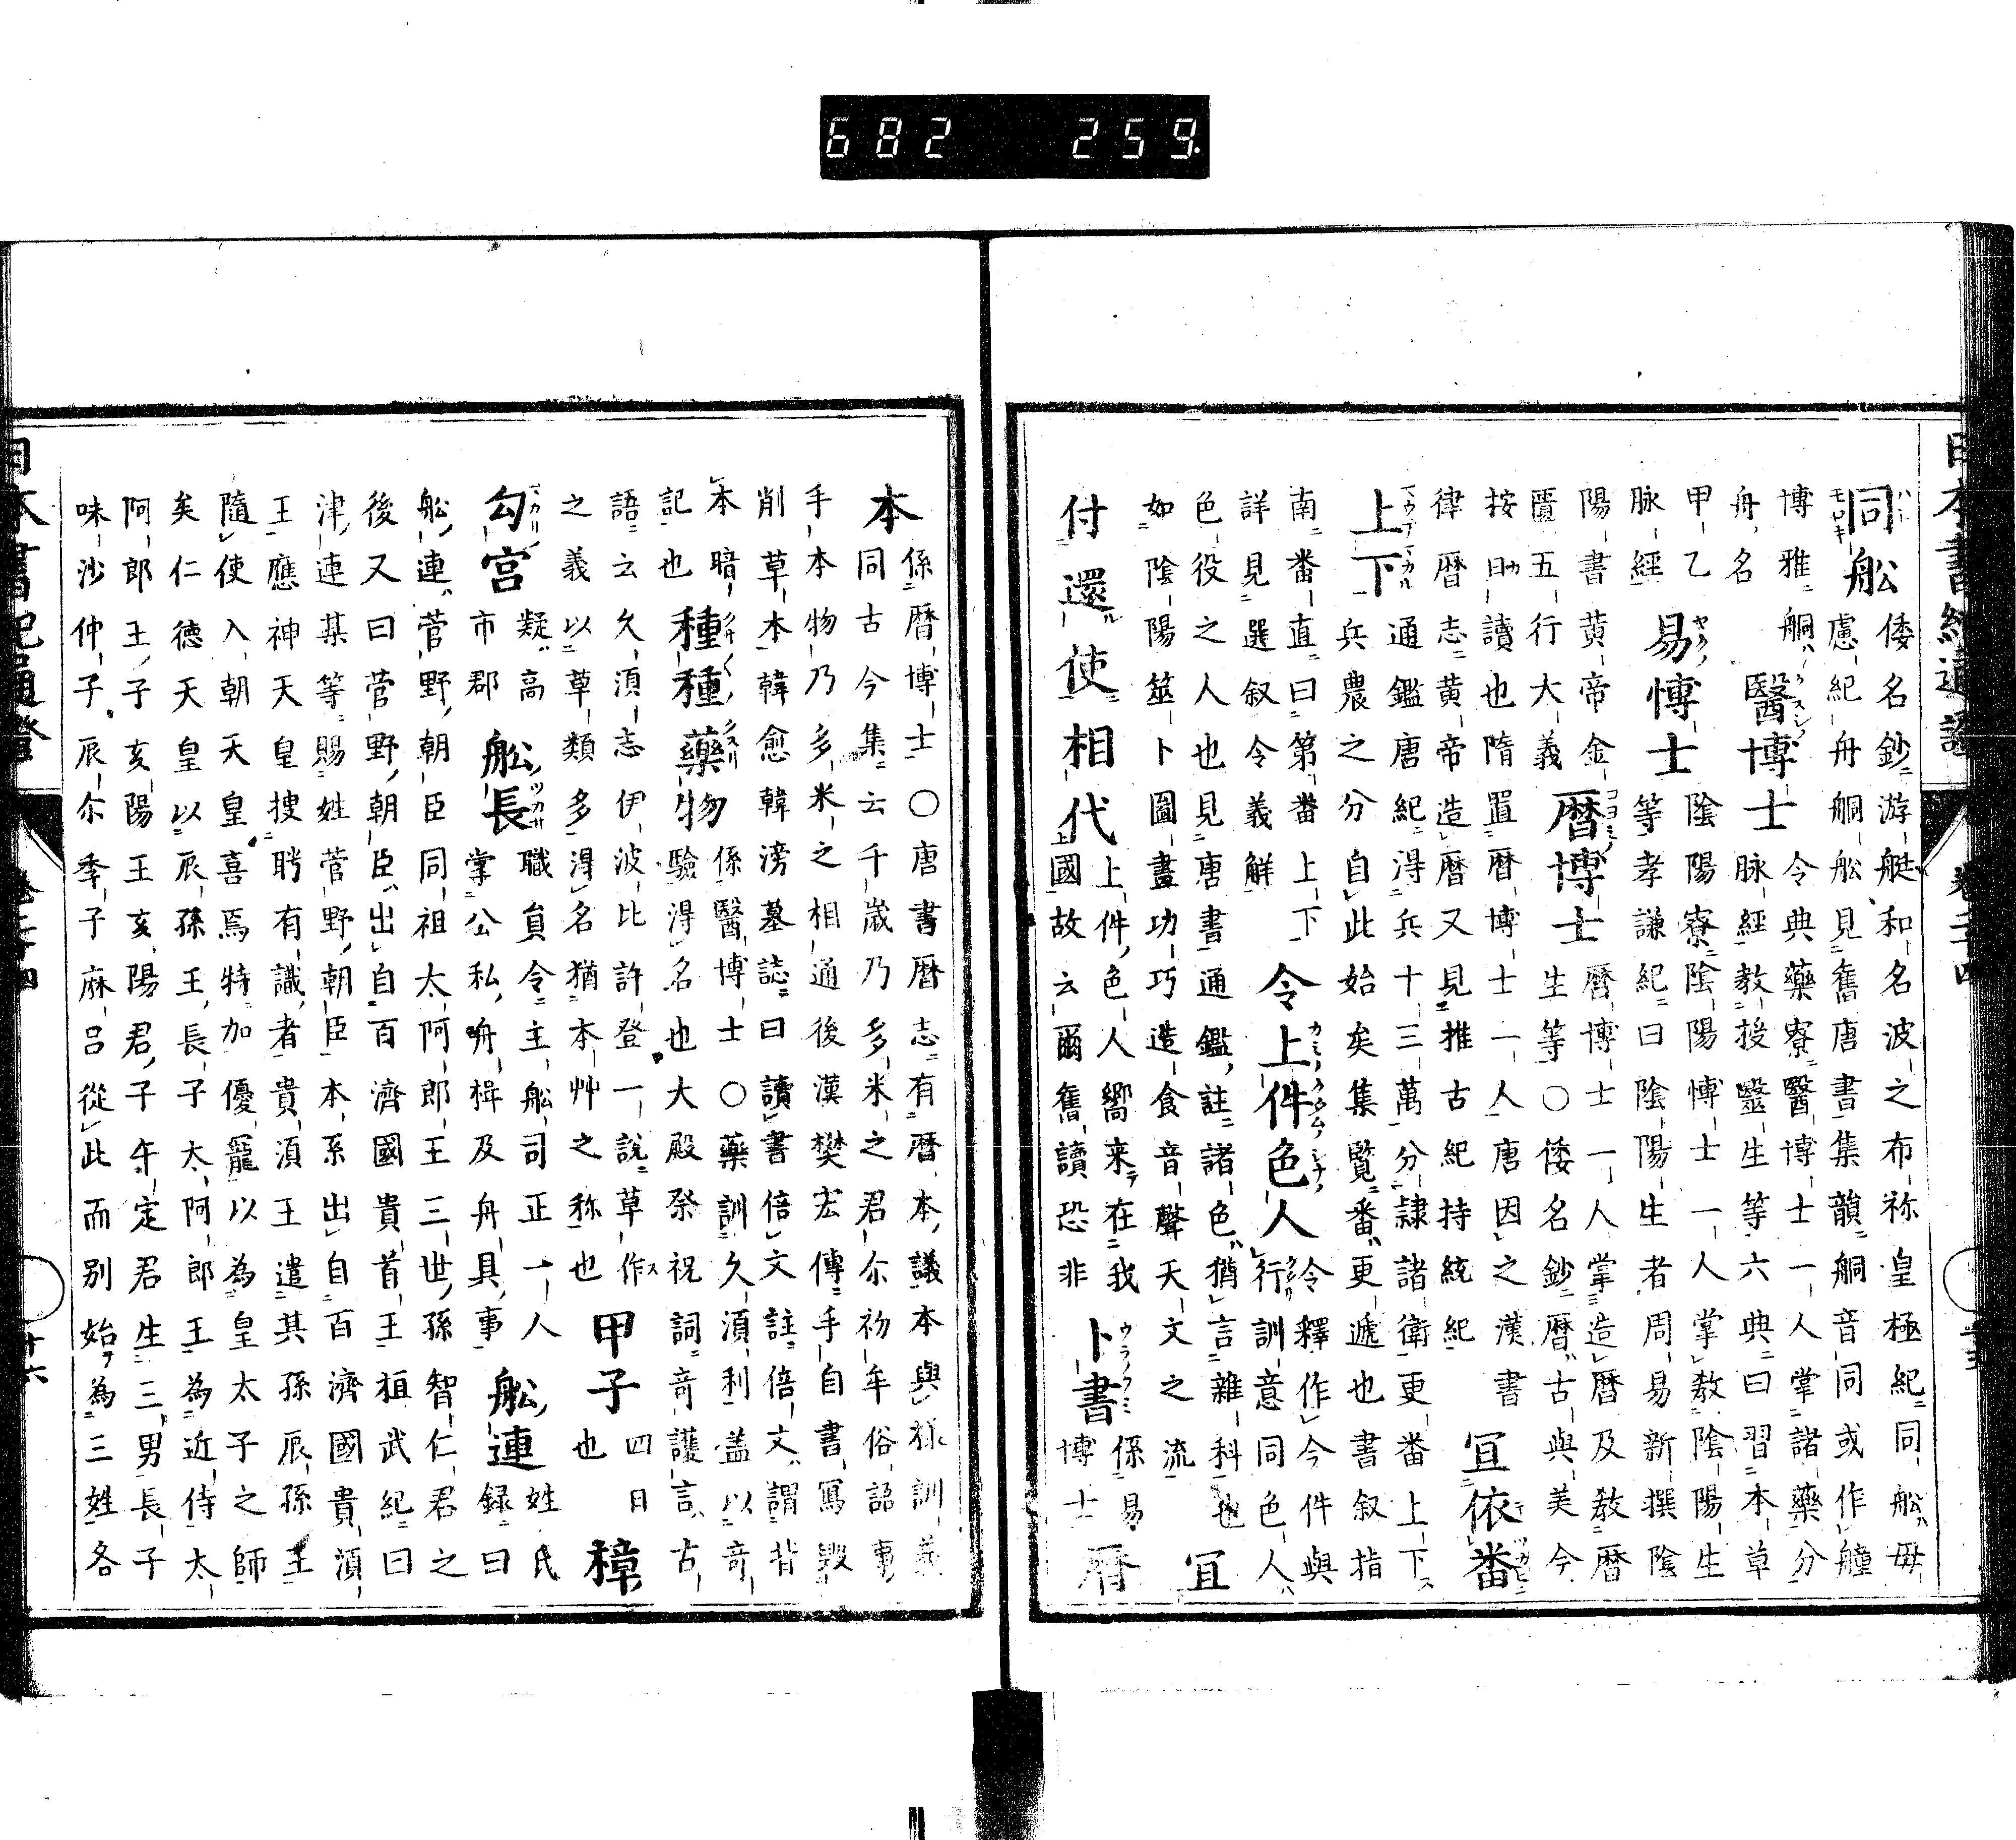 682 259
日本書紀通證
同舩 倭名鈔游艇和名波之布祢皇極紀同舩毋
慮紀舟舸舩見舊唐書集韻舸音同或作艟
博雅舸 令典藥寮醫博士一人掌諸藥分
舟名 醫博士 脉經教授毉生等六典曰習本草
甲乙 陰陽寮陰陽愽士一人掌教陰陽生
脉經 易愽士 等孝謙紀曰陰陽生者周易新撰陰
陽書黄帝金 暦博士一人掌造暦及教暦
匱五行大義 暦博士 生等〇倭名鈔暦古與美今
按日讀也隋置暦博士一人唐因之漢書
律暦志黄帝造暦又見推古紀持統紀 冝依番
上下 通鑑唐紀淂兵十三萬分隷諸衛更番上下
兵農之分自此始矣集覧番更遞也書叙指
南番直曰第番上下
詳見選叙令義解 令上件色人 令釋作今件與
行訓意同色人
色役之人也見唐書通鑑註諸色猶言雜科也 冝
如陰陽筮卜圖畫功巧造食音聲天文之流
付還使相代 上件色人嚮来在我
上國故云爾舊讀恐非 卜書 係易
博士 暦
本 係暦博士〇唐書暦志有暦本議本與様訓義
同古今集云千歳乃多米之君尓初牟俗語事
手本物乃多米之相通後漢樊宏傳手自書寫毀
削草本韓愈韓滂墓誌曰讀書倍文註倍文謂背
本暗 種種藥物 係醫博士〇藥訓久湏利盖以竒
記也 驗淂名也大殿祭祝詞竒護言古
語云久湏志伊波比許登一說草作
之義以草類多淂名猶本艸之称也 甲子 四日
也 樟
勾宮 疑高
市郡 舩長 職員令主舩司正一人
掌公私舟楫及舟具事 舩連 姓氏
録曰
舩連菅野朝臣同祖太阿郎王三世孫智仁君之
後又曰菅野朝臣出自百濟國貴首王祖武紀曰
津連某等賜姓菅野朝臣本系出自百濟國貴湏
王應神天皇捜聘有識者貴湏王遣其孫辰孫王
隨使入朝天皇喜焉特加優寵以為皇太子之師
矣仁德天皇以辰孫王長子太阿郎王為近侍太
阿郎王子亥陽王亥陽君子午定君生三男長子
味沙仲子辰尓季子麻呂從此而別始為三姓各
日本書紀通證
卷二十四
十六